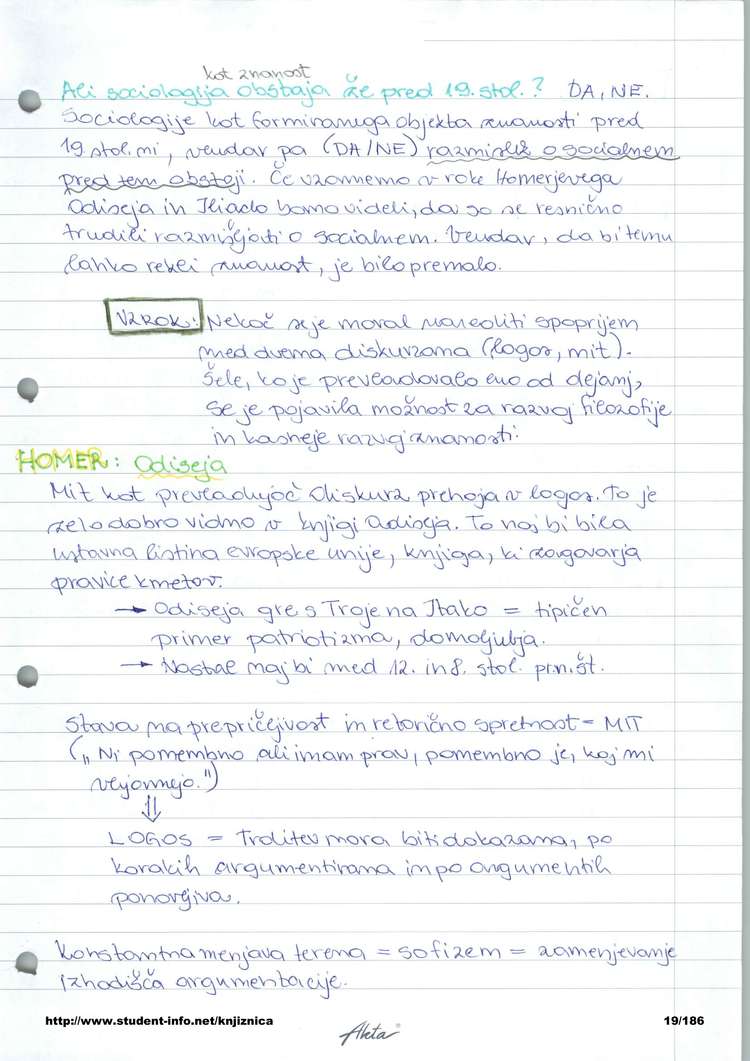 kot znanost
Ali sociologija obstaja že pred 19. stol.? DA, NE.
Sociologije kot formiranega objekta znanosti pred
19 stol. ni, vendar pa (DA/NE) razmislek o socialnem
pred tem obstoji. Če vzamemo v roke Homerjevega
Odiseja in Iliado bomo videli, da so se resnično
trudili razmišljati o socialnem. Vendar, da bi temu
lahko rekli znanost, je bilo premalo.
VZROK: Nekoč se je moral narediti spoprijem
med dvema diskurzoma (logos, mit).
Šele, ko je prevladovalo eno od dejanj,
se je pojavila možnost za razvoj filozofije
in kasneje razvoj znanosti.
HOMER: Odiseja
Mit kot prevladujoč diskurz prehaja v logos. To je
zelo dobro vidno v knjigi Odiseja. To naj bi bila
ustavna listina evropske unije, knjiga, ki zagovarja
pravice kmetov.
→ Odiseja gre s Troje na Itako = tipičen
primer patriotizma, domoljubja.
→ Nastal naj bi med 12. in 8. stol. pr.n.št.
Stava na prepričljivost in retorično spretnost = MIT
(„Ni pomembno ali imam prav, pomembno je, kaj mi
verjamejo.")
⇓
LOGOS = Trditev mora biti dokazana, po
korakih argumentirana in po argumentih
ponovljiva.
Konstantna menjava terena = sofizem = zamenjevanje
izhodišča argumentacije.
http://www.student-info.net/knjiznica 19/186
Akta